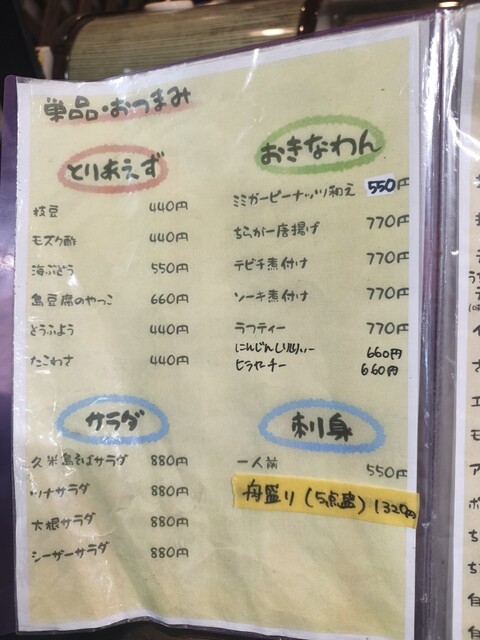 単品・おつまみ
とりあえず
枝豆 440円
モズク酢 440円
海ぶどう 550円
島豆腐のやっこ 660円
とうふよう 440円
たこわさ 440円
おきなわん
ミミガーピーナッツ和え 550円
ちらがー唐揚げ 770円
テビチ煮付け 770円
ソーキ煮付け 770円
ラフティー 770円
にんじんしりしりー 660円
ヒラヤーチー 660円
サラダ
久米島そばサラダ 880円
ツナサラダ 880円
大根サラダ 880円
シーザーサラダ 880円
刺身
一人前 550円
舟盛り(5点盛) 1320円